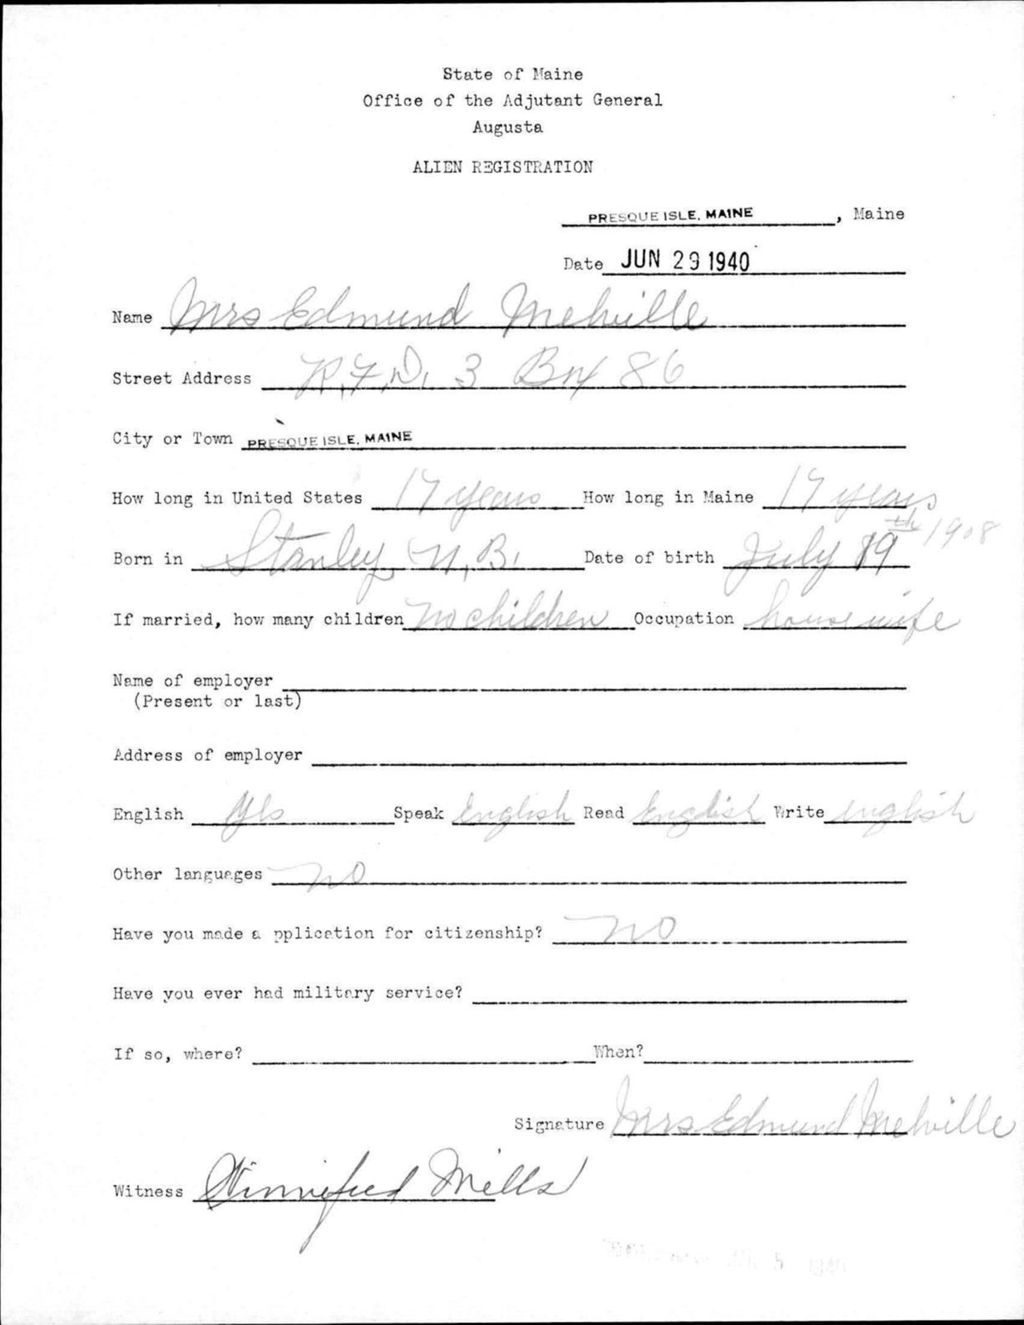 State of Maine
Office of the Adjutant General
Augusta
ALIEN REGISTRATION
PRESQUE ISLE, MAINE, Maine
Date JUN 29 1940
Name Mrs Edmund Melville
Street Address R.F.D. 3 Box 86
City or Town PRESQUE ISLE, MAINE
How long in United States 17 years How long in Maine 17 years
Born in Stanley, N.B. Date of birth July 19th 1908
If married, how many children no children Occupation house wife
Name of employer
(Present or last)
Address of employer
English Yes Speak English Read English Write english
Other languages no
Have you made a pplication for citizenship? no
Have you ever had military service?
If so, where? When?
Signature Mrs Edmund Melville
Witness Winnifred Mills